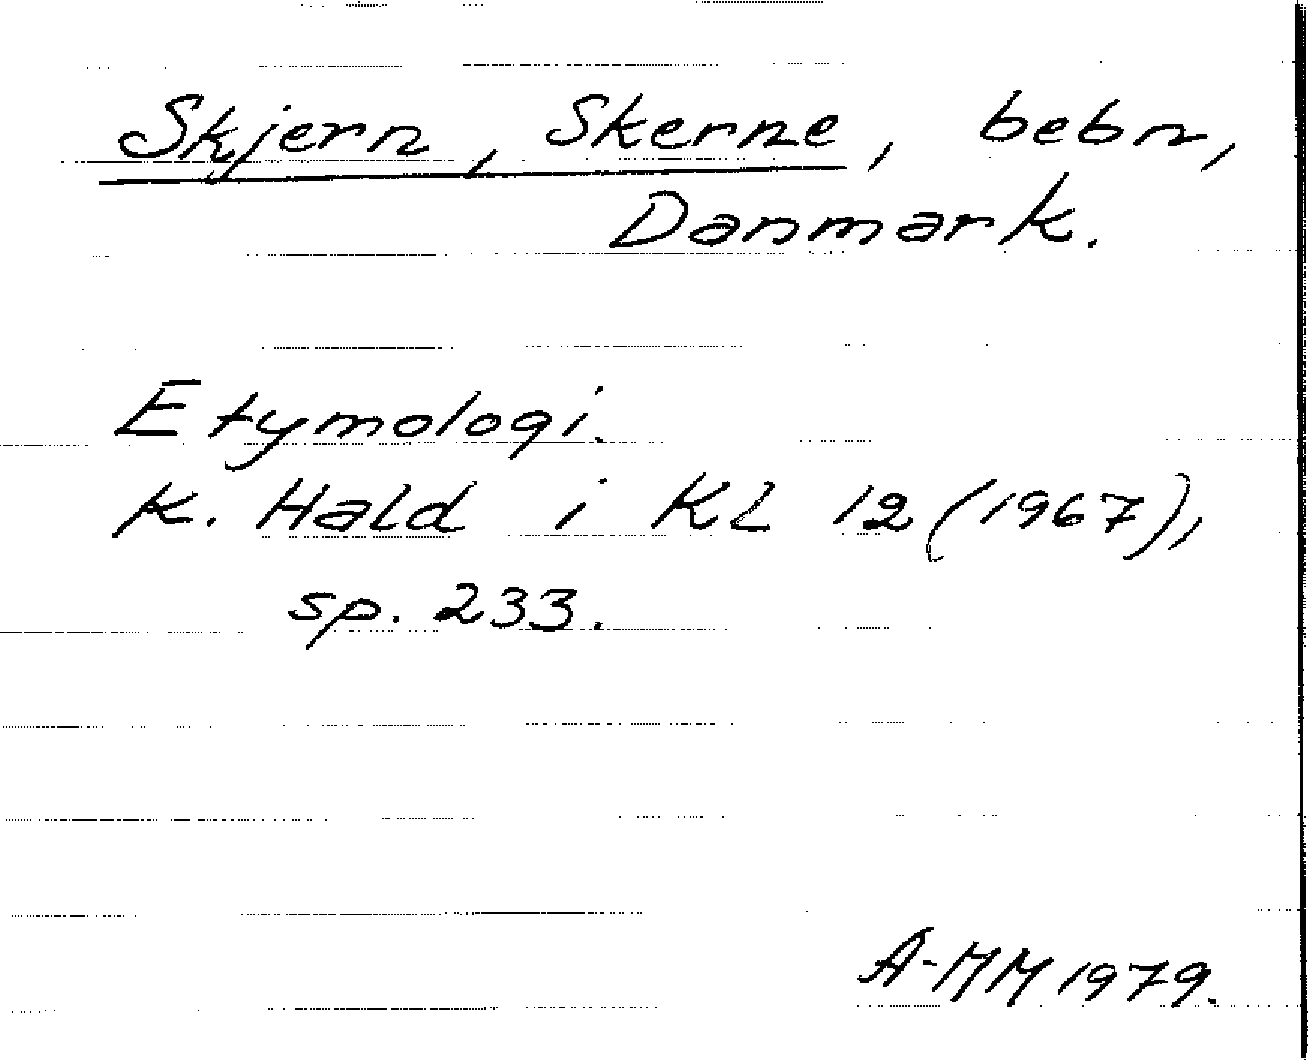 Skjern, Skerne, bebn,
Danmark.
Etymologi.
K. Hald i KL 12 (1967),
sp. 233.
A-MM 1979.